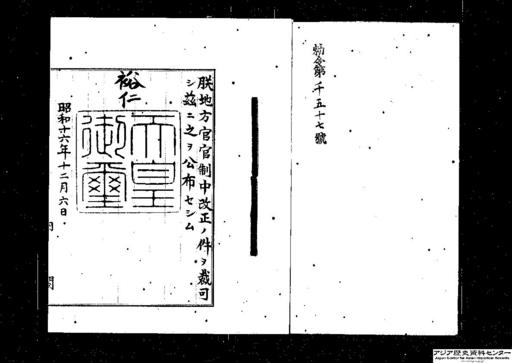 勅令第千五十七號
朕地方官官制中改正ノ件ヲ裁可
シ玆ニ之ヲ公布セシム
裕仁
天皇
御璽
昭和十六年十二月六日
アジア歴史資料センター
Japan Center for Asian Historical Records